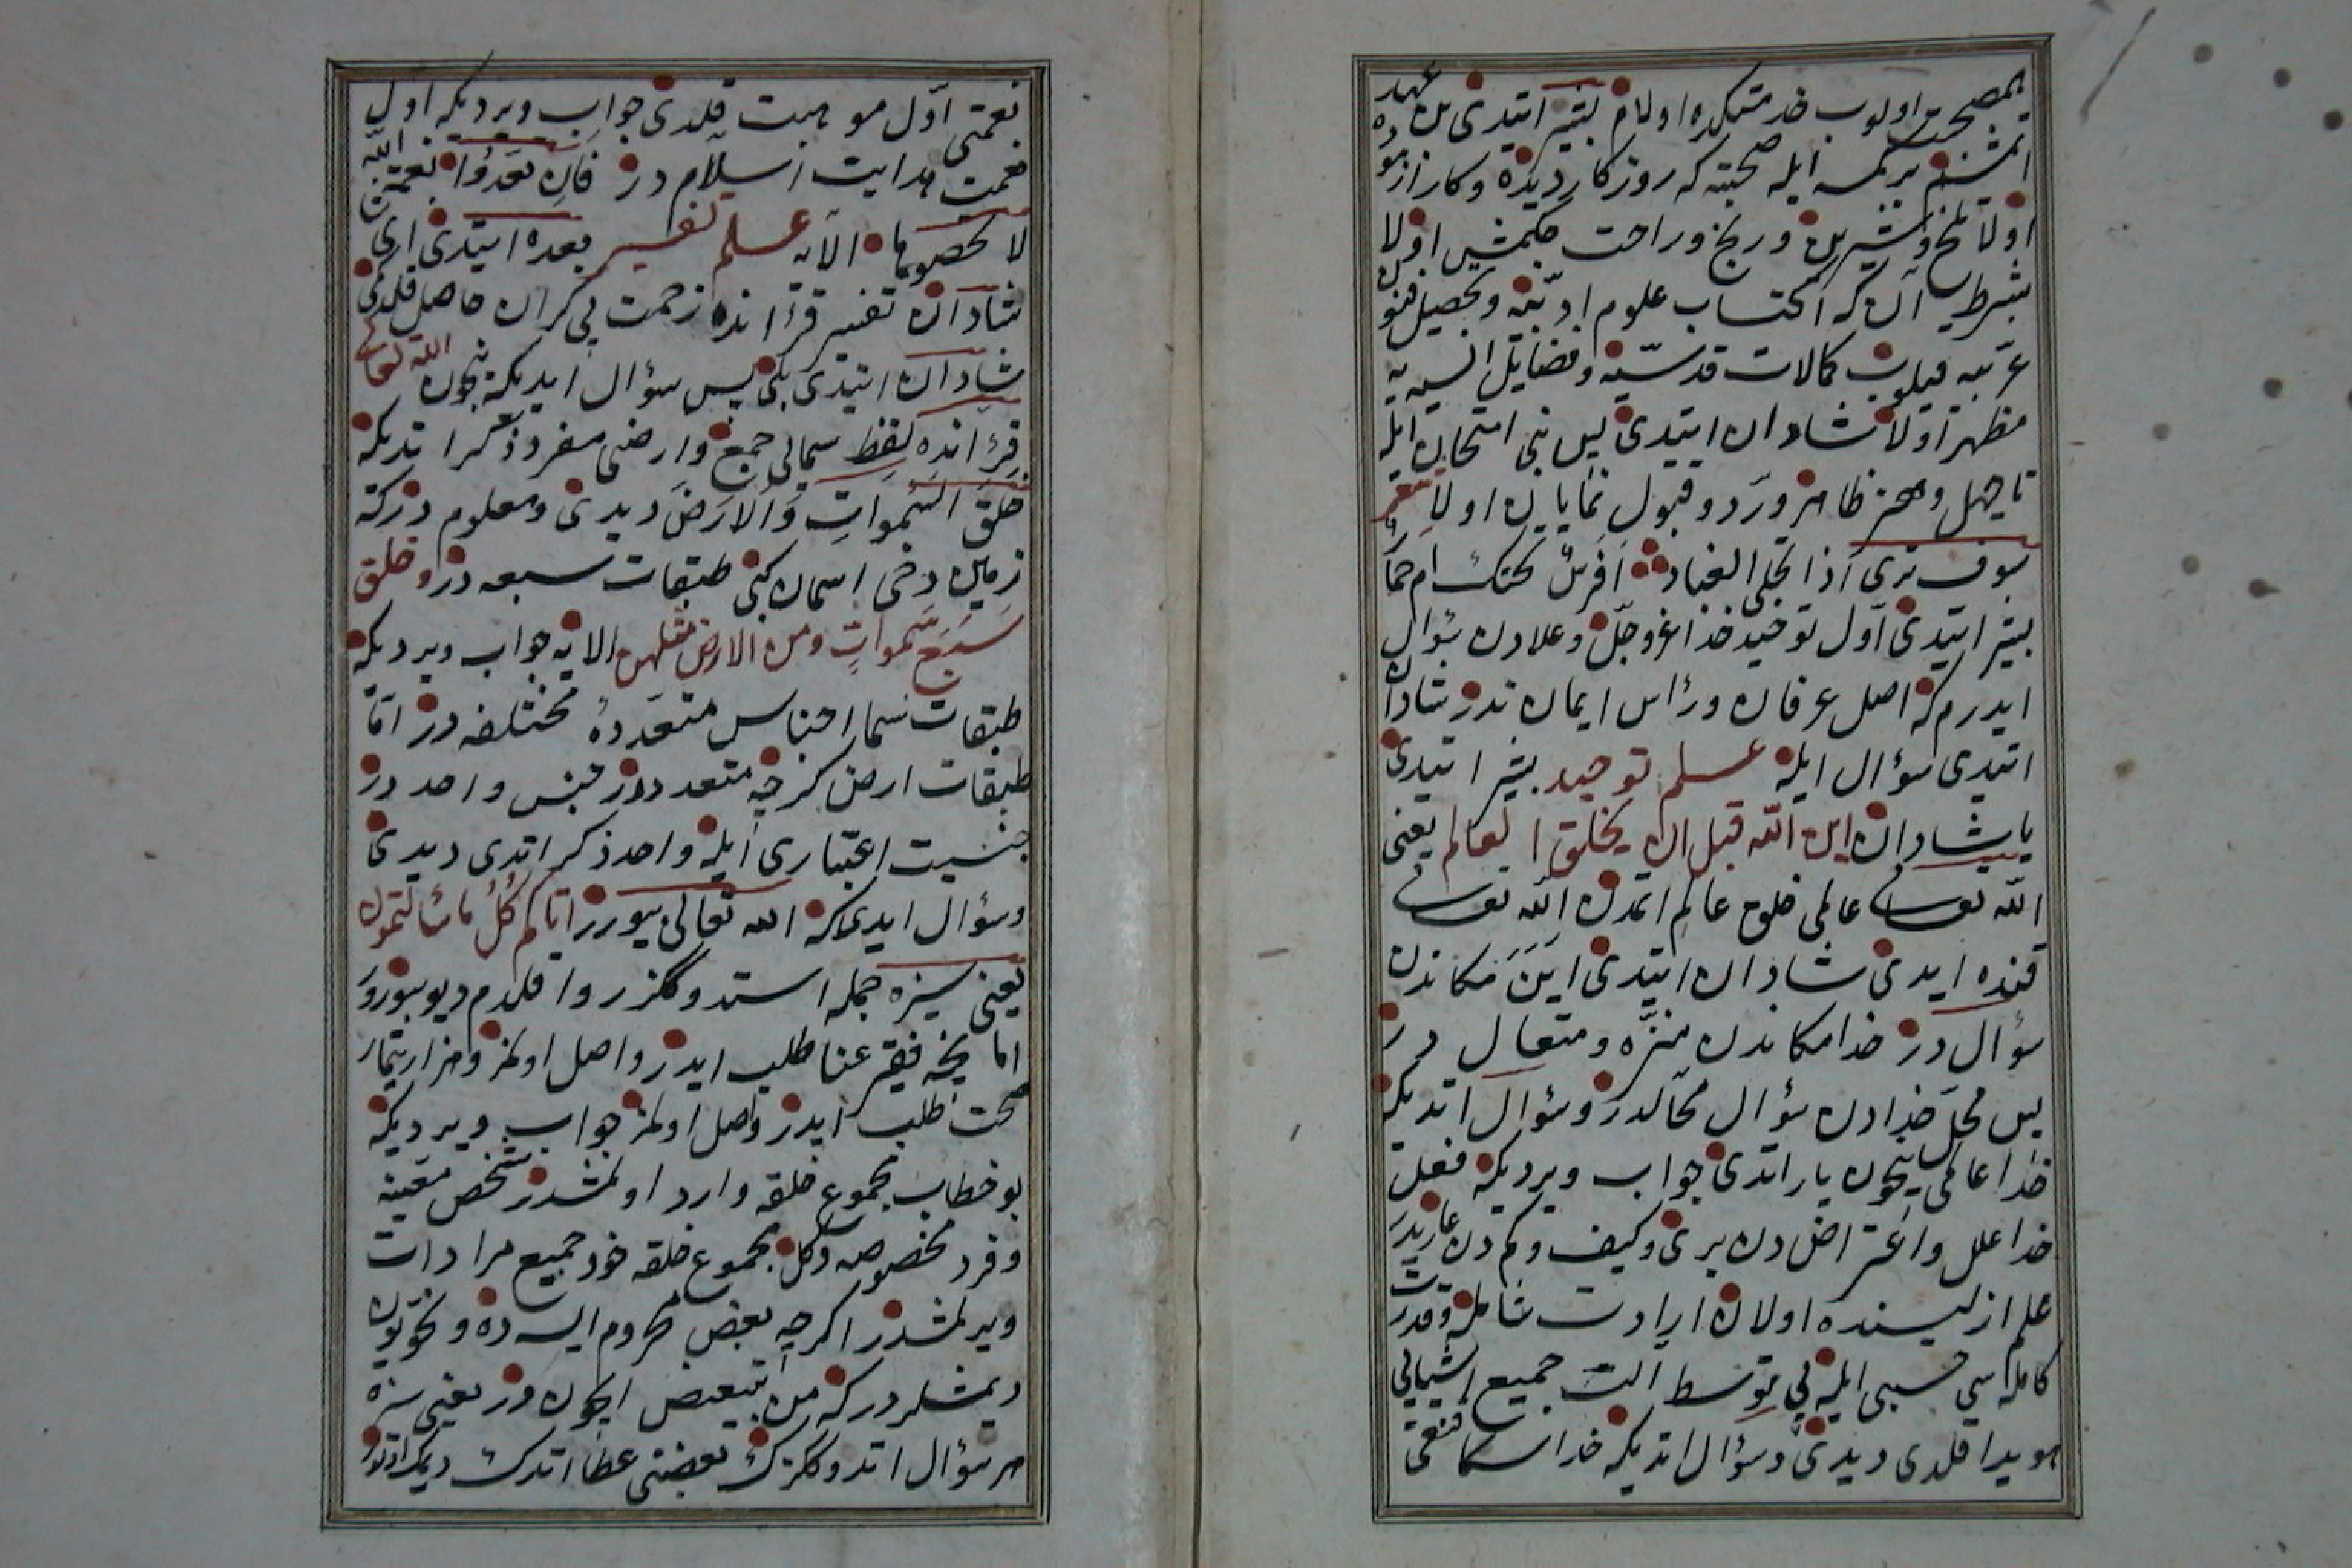 همصحبت اولوب خدمتكده اولام بشير ايتدى بن عهد
ايتمشم بر كمسه ايله صحبته كه روزكار ديده وكار ازموده
اولا تلخ وشيرين ورنج وراحت چكمش اولا
بشرط آن كه اكتساب علوم ادبيه وتحصيل فنون
عربيه قيلوب كمالات قدسيه وفضايل انسيه يه
مظهر اولا شادان ايتدى پس بنى امتحان ايله
تا جهل وهنر ظاهر ورد وقبول نمايان اولا شعر
سوف ترى اذا انجلى الغبار افرس تحتك ام حمار
بشير ايتدى اول توحيد خدا عز وجل وعلادن سؤال
ايدرم كه اصل عرفان ورأس ايمان ندر شادان
ايتدى سؤال ايله علم توحيد بشير ايتدى
يا شادان اين الله قبل ان يخلق العالم يعنى
الله تعالى عالمى خلق عالم ايتمدن الله تعالى
قنده ايدى شادان ايتدى اين مكاندن
سؤال در خدا مكاندن منزه ومتعال در
پس محل خدادن سؤال محالدر وسؤال اتديكه
خدا عالمى نيچون يار اتدى جواب ويرديكه فعل
خدا علل واعتراض دن برى وكيف وكم دن عاريدر
علم ازليسنده اولان ارادت شامله وقدرت
كامله سى حسبى ايله بى توسط آلت جميع اشيايى
هويدا قلدى ديدى وسؤال اتديكه خدا سكا قنغى
نعمتى اول موهبت قلدى جواب ويرديكه اول
نعمت هدايت اسلام در فان تعدوا نعمة الله
لا تحصوها الايه علم تفسير بعده ايتدى ارى
شادان تفسير قرآنده زحمت بى كران حاصل قلدى
شادان ايتدى بلى پس سؤال ايديكه نيچون الله تعالى
قرآنده لفظ سمايى جمع وارضى مفرد ذكر اتديكه
خلق السموات والارض ديدى ومعلوم دركه
زمين دخى اسمان كبى طبقات سبعه در وخلق
سبع سموات ومن الارض مثلهن الايه جواب ويرديكه
طبقات سما اجناس متعدده مختلفه در اما
طبقات ارض كرچه متعدددر جنس واحددر
جنسيت اعتبارى ايله واحد ذكر اتدى ديدى
وسؤال ايدى كه الله تعالى بيورر اتاكم كل ما سألتموه
يعنى سزه جمله استدوككزر روا قلدم ديو بيورر
اما نيچه فقير غنا طلب ايدر واصل اولمز وهزار بيمار
صحت طلب ايدر واصل اولمز جواب ويرديكه
بو خطاب مجموع خلقه وارد اولمشدر شخص معينه
وفرد مخصوصه دكل مجموع خلقه خود جميع مرادات
ويرلمشدر اكرچه بعض محروم ايسه ده ونحويون
ديمشلردركه من تبعيض ايچون در يعنى سزه
هر سؤال اتدوككزك بعضنى عطا اتدك ديمك اولور